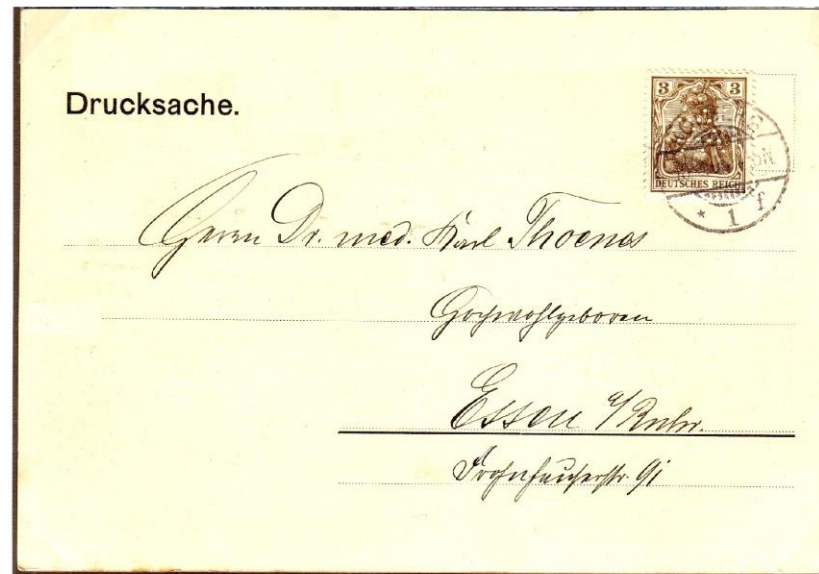 Drucksache.
3 3
DEUTSCHES REICH
* 1 f
Herrn Dr. med. Karl Thoenes
Hochwohlgeboren
Essen a/Ruhr.
Frohnhauserstr. 91